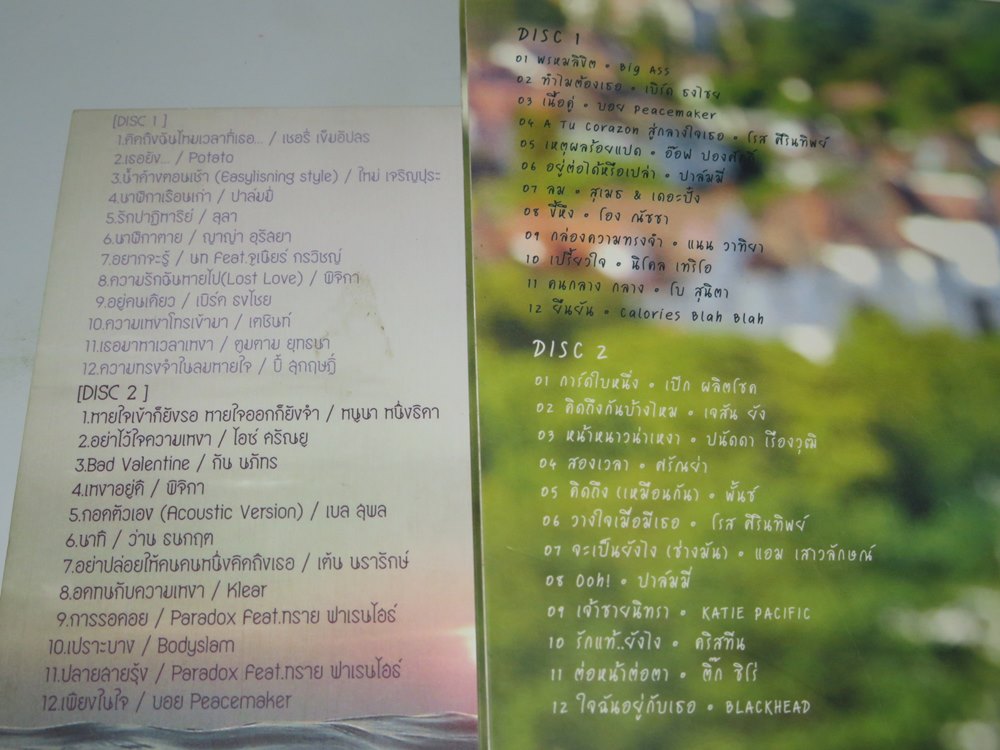 [DISC 1 ]
1.คิดถึงฉันไหมเวลาที่เธอ... / เชอรี่ เข็มอัปสร
2.เธอยัง... / Potato
3.น้ำค้างตอนเช้า (Easylisning style) / ใหม่ เจริญปุระ
4.นาฬิกาเรือนเก่า / ปาล์มมี่
5.รักปาฏิหาริย์ / ลุลา
6.นาฬิกาตาย / ญาญ่า อุรัสยา
7.อยากจะรู้ / นท Feat.จูเนียร์ กรวิชญ์
8.ความรักฉันหายไป(Lost Love) / พิจิกา
9.อยู่คนเดียว / เบิร์ด ธงไชย
10.ความเหงาโทรเข้ามา / เตชินท์
11.เธอมาหาเวลาเหงา / ตูมตาม ยุทธนา
12.ความทรงจำในลมหายใจ / บี้ สุกฤษฎิ์
[DISC 2 ]
1.หายใจเข้าก็ยังรอ หายใจออกก็ยังจำ / หนูนา หนึ่งธิดา
2.อย่าไว้ใจความเหงา / ไอซ์ ศรัณยู
3.Bad Valentine / กัน นภัทร
4.เหงาอยู่ดี / พิจิกา
5.กอดตัวเอง (Acoustic Version) / เบล สุพล
6.นาที / ว่าน ธนกฤต
7.อย่าปล่อยให้คนคนหนึ่งคิดถึงเธอ / เต้น นรารักษ์
8.อดทนกับความเหงา / Klear
9.การรอคอย / Paradox Feat.ทราย ฟาเรนไฮธ์
10.เปราะบาง / Bodyslam
11.ปลายสายรุ้ง / Paradox Feat.ทราย ฟาเรนไฮธ์
12.เพียงในใจ / บอย Peacemaker
DISC 1
01 พรหมลิขิต • Big Ass
02 ทำไมต้องเธอ • เบิร์ด ธงไชย
03 เนื้อคู่ • บอย Peacemaker
04 A Tu Corazon สู่กลางใจเธอ • โรส ศิรินทิพย์
05 เหตุผลร้อยแปด • อ๊อฟ ปองศักดิ์
06 อยู่ต่อได้หรือเปล่า • ปาล์มมี่
07 ลม • สุเมธ & เดอะปั๋ง
08 ขี้หึง • โอง ณัชชา
09 กล่องความทรงจำ • แนน วาทิยา
10 เปรี้ยวใจ • นิโคล เทริโอ
11 คนกลาง กลาง • โบ สุนิตา
12 ยืนยัน • Calories Blah Blah
DISC 2
01 การ์ดใบหนึ่ง • เป๊ก ผลิตโชค
02 คิดถึงกันบ้างไหม • เจสัน ยัง
03 หน้าหนาวน่าเหงา • ปนัดดา เรืองวุฒิ
04 สองเวลา • ศรัณย่า
05 คิดถึง (เหมือนกัน) • พั้นช์
06 วางใจเมื่อมีเธอ • โรส ศิรินทิพย์
07 จะเป็นยังไง (ช่างมัน) • แอม เสาวลักษณ์
08 Ooh! • ปาล์มมี่
09 เจ้าชายนิทรา • KATIE PACIFIC
10 รักแท้..ยังไง • คริสทีน
11 ต่อหน้าต่อตา • ติ๊ก ชิโร่
12 ใจฉันอยู่กับเธอ • BLACKHEAD